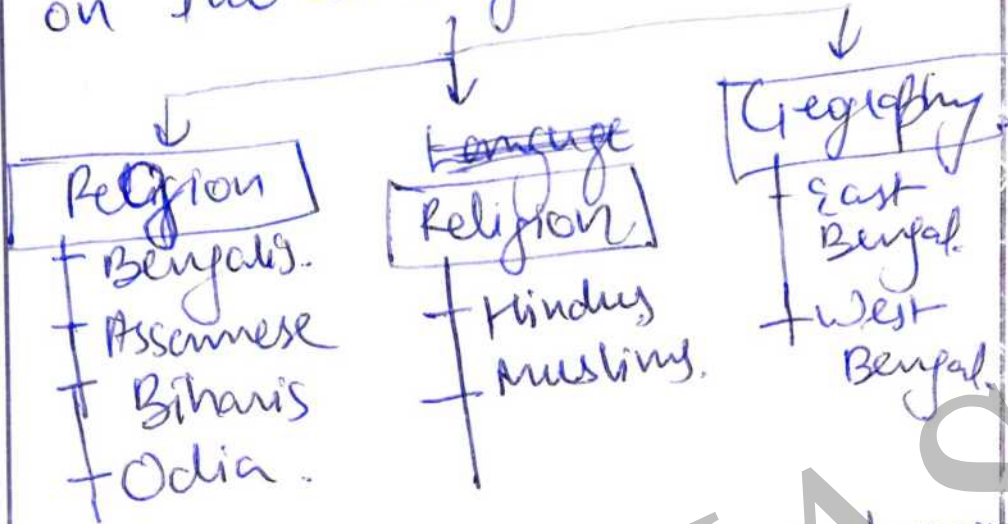 on the
Religion
Bengalis.
Assamese
Biharis
Odia.
Language
Religion
Hindus
Muslims.
Geography
East
Bengal.
West
Bengal.